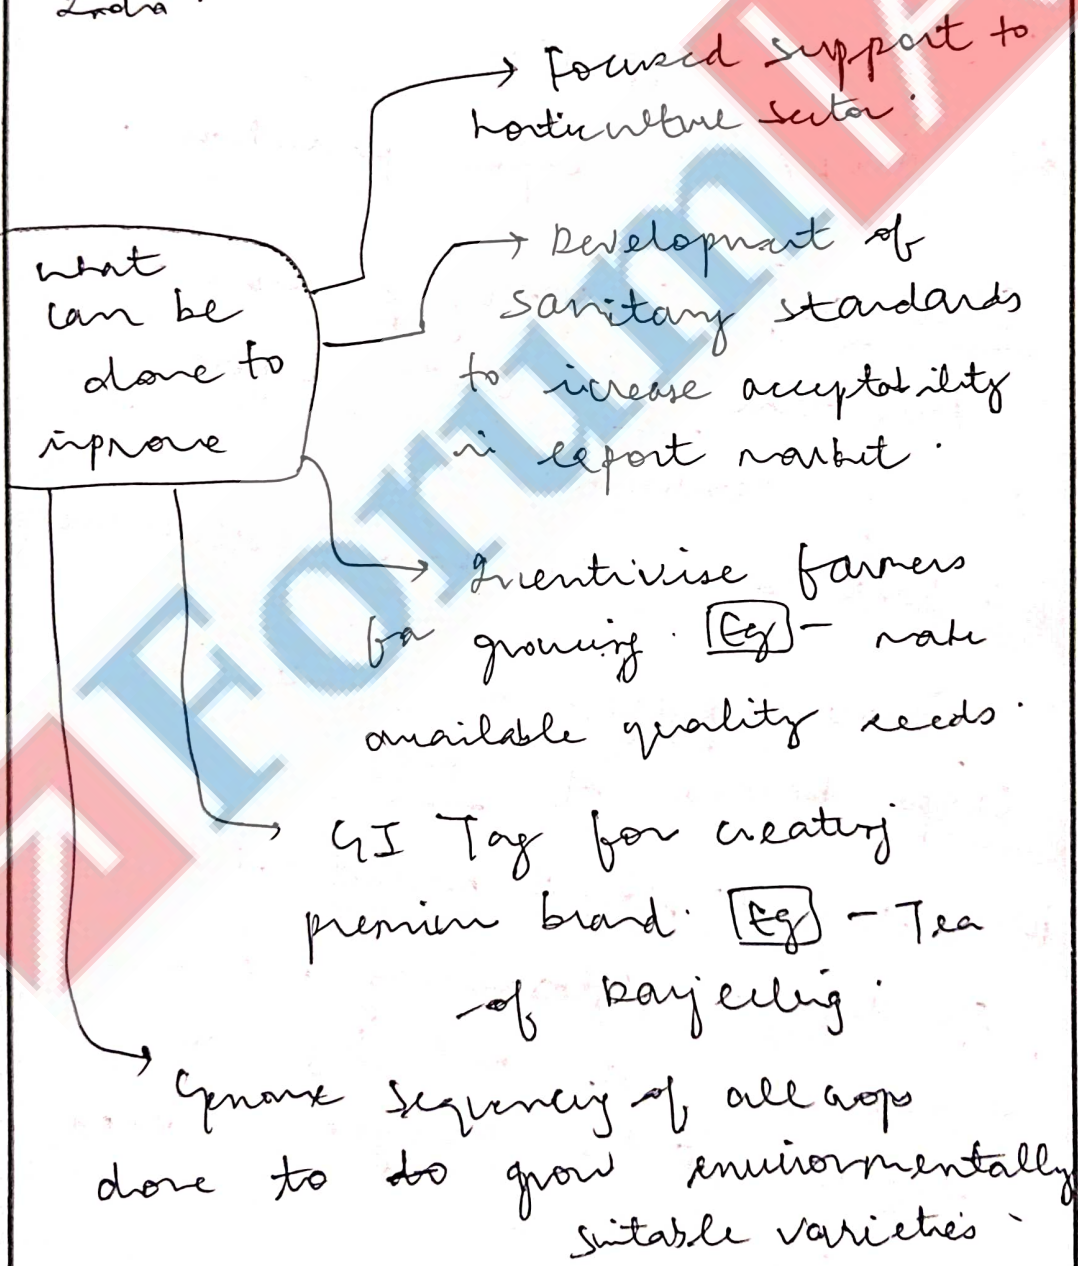 India
Focused support to
horticulture sector.
what
can be
done to
improve
Development of
sanitary standards
to increase acceptability
in export market.
Incentivise farmers
for growing. Eg - make
available quality seeds.
GI Tag for creating
premium brand. Eg - Tea
of Darjeeling.
Genome Sequencing of all crops
done to do grow environmentally
suitable varieties.
ForumIAS